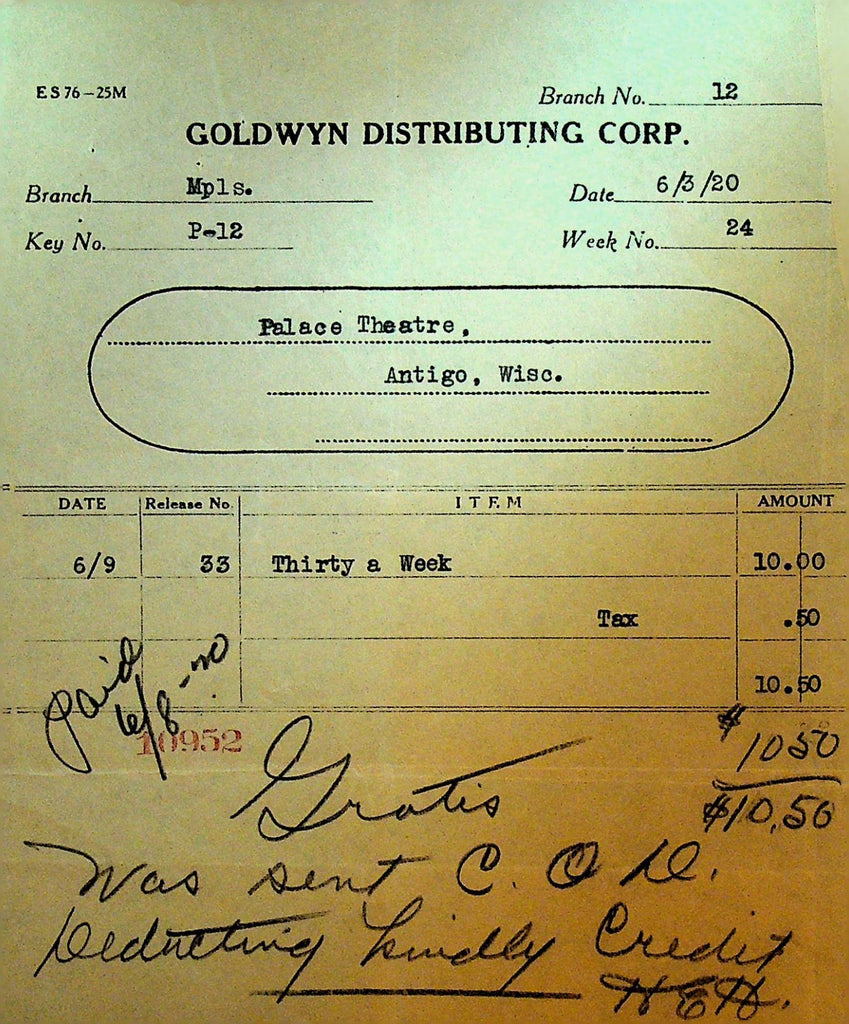 ES 76-25M
Branch No. 12
GOLDWYN DISTRIBUTING CORP.
Branch Mpls. Date 6/3/20
Key No. P-12 Week No. 24
Palace Theatre,
Antigo, Wisc.
DATE Release No. ITEM AMOUNT
6/9 33 Thirty a Week 10.00
Tax .50
10.50
Paid
6/8-20
10952
$1050
Gratis
$10.50
Was sent C.O.D.
Deducting kindly Credit
HEH.